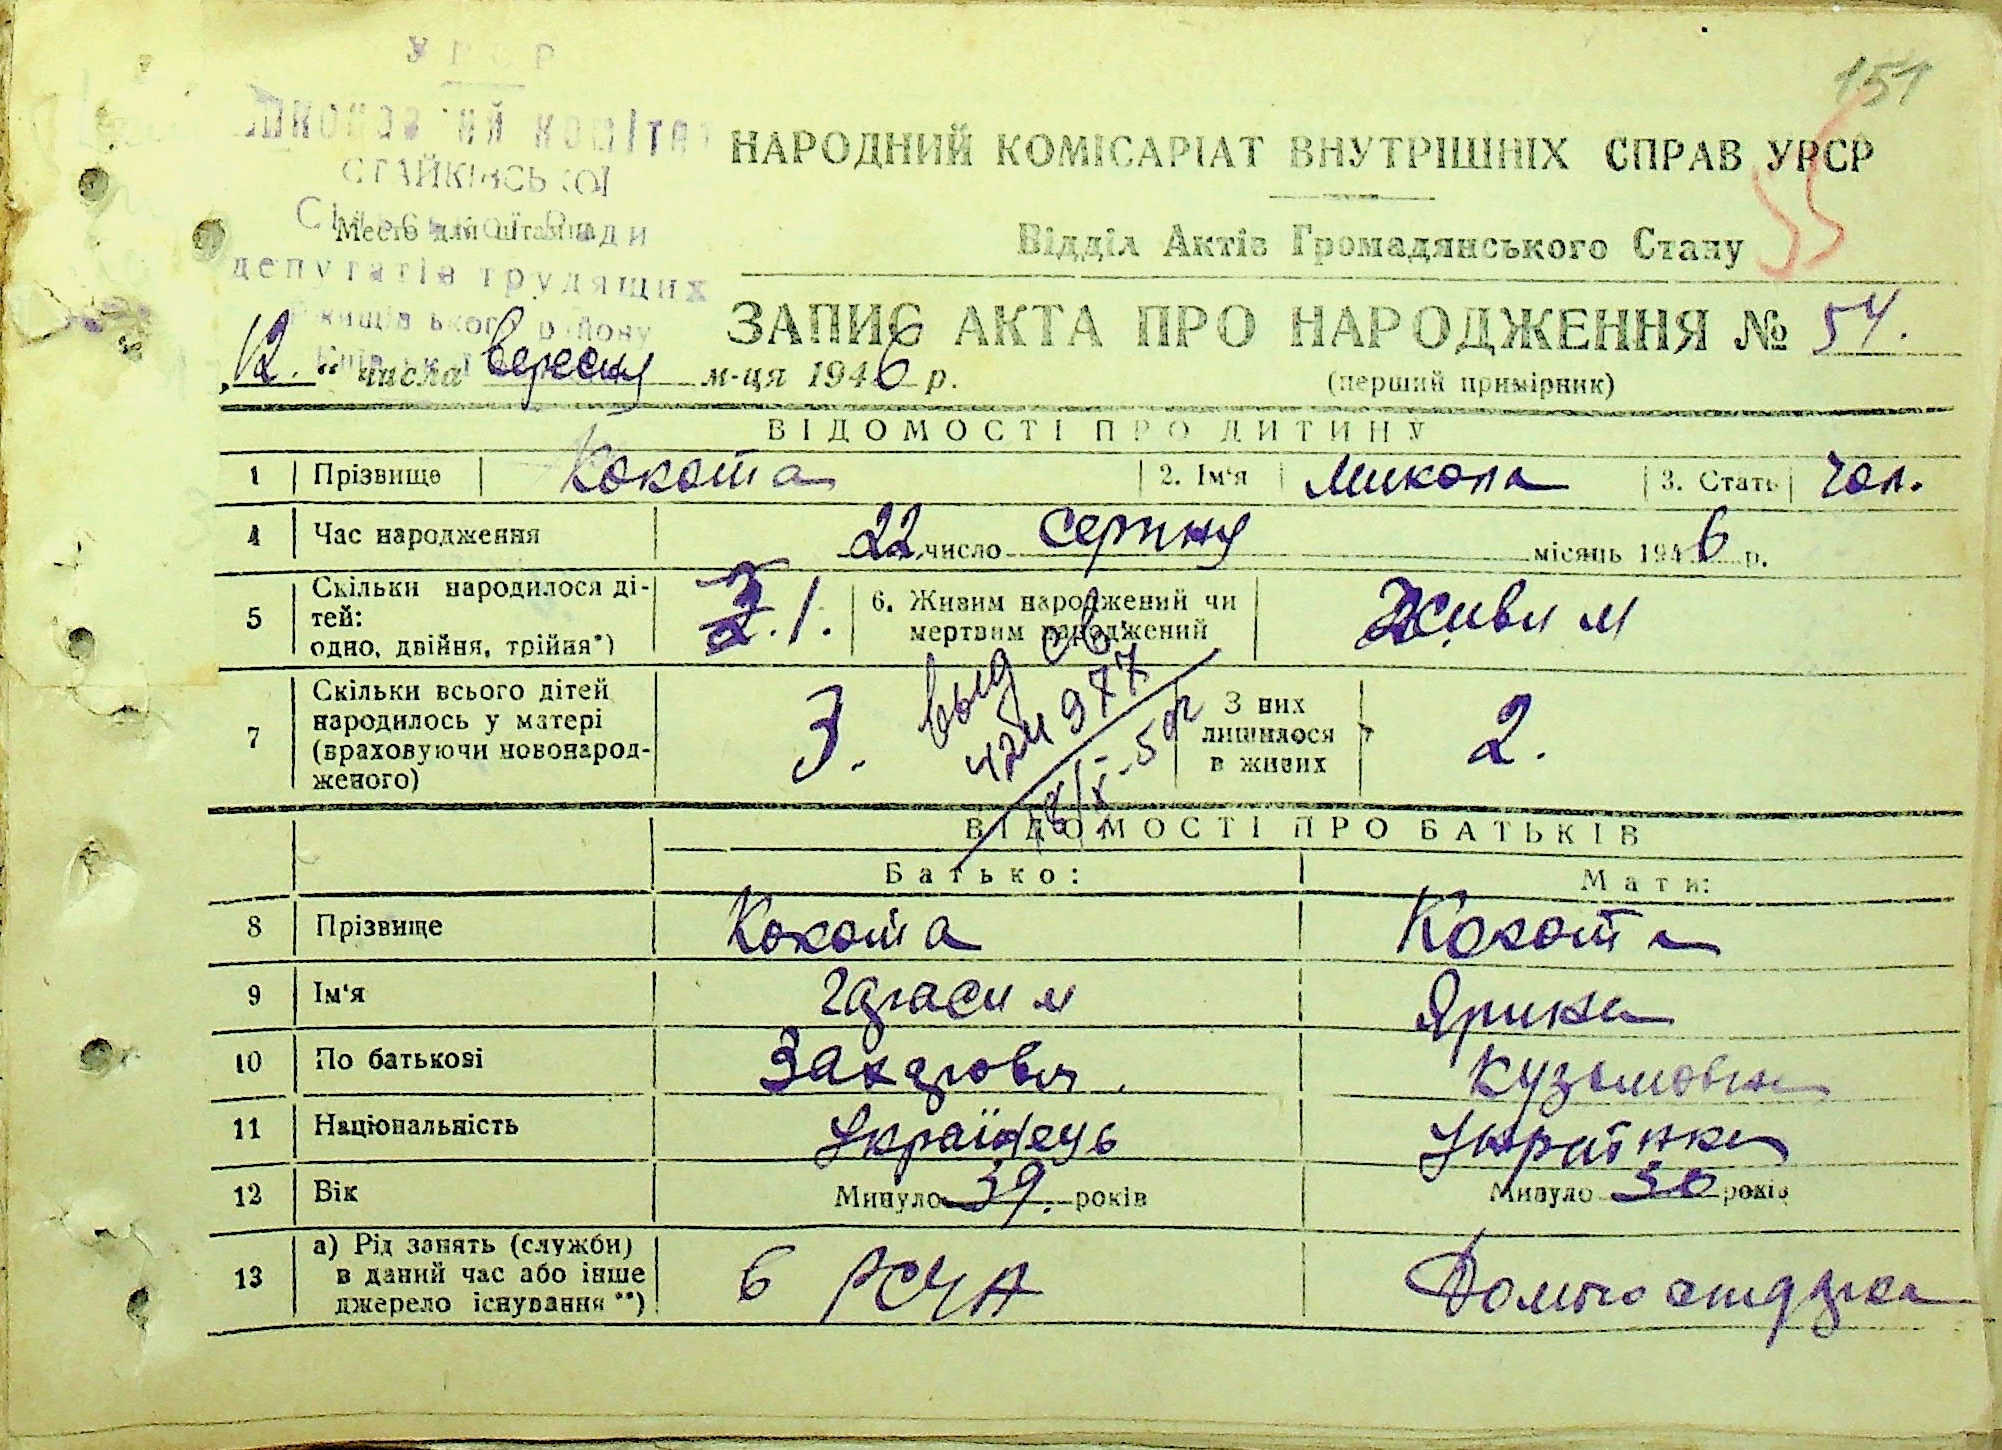 151
55
УРСР
СТАЙКІВСЬКОЇ
Место для штампа
депутатів трудящих
НАРОДНИЙ КОМІСАРІАТ ВНУТРІШНІХ СПРАВ УРСР
Відділ Актів Громадянського Стану
ЗАПИС АКТА ПРО НАРОДЖЕННЯ № 54.
„12.“ числа вересня м-ця 1946 р.
(перший примірник)
ВІДОМОСТІ ПРО ДИТИНУ
1 Прізвище Кокота 2. Ім'я Микола 3. Стать чол.
4 Час народження 22 число серпня місяць 1946 р.
5 Скільки народилося ді-
тей:
одно, двійня, трійня*) 1.
6. Живим народжений чи
мертвим народжений Живим
7 Скільки всього дітей
народилось у матері
(враховуючи новонарод-
женого) 3.
З них
лишилося
в живих 2.
выд св.
977
ВІДОМОСТІ ПРО БАТЬКІВ
Батько: Мати:
8 Прізвище Кокота Кокота
9 Ім'я Гарасим Ярина
10 По батькові Захарович Кузьмовна
11 Національність Українець Українка
12 Вік Минуло 39. років Минуло 30 років
13 а) Рід занять (служби)
в даний час або інше
джерело існування **)
в РСЧА Домогосподарка